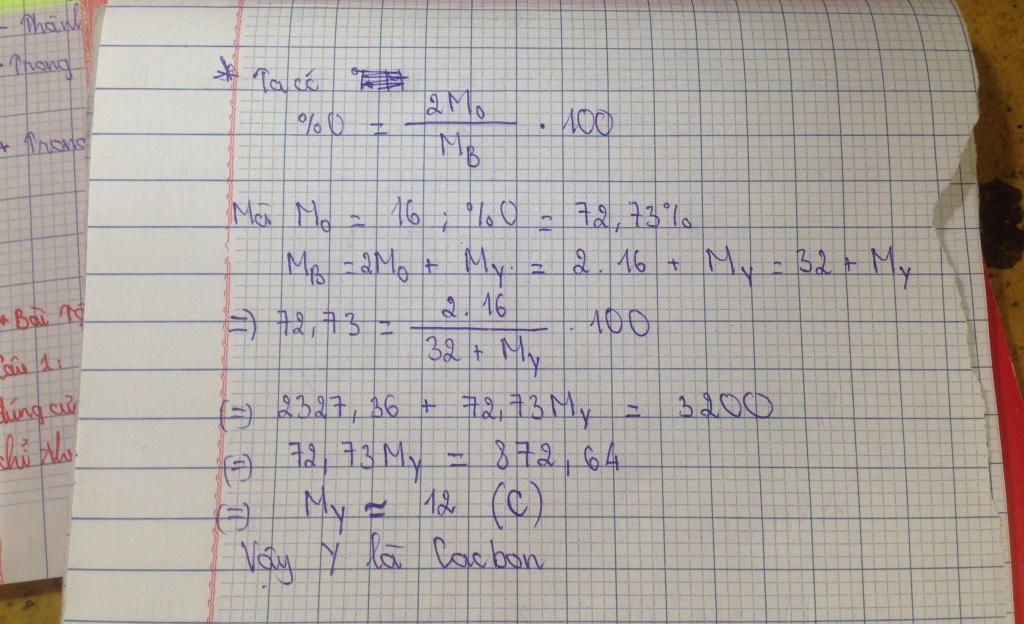 - Thành
- Trong
+ Trong
* Bài
Câu 1:
* Ta có
%O = 2M₀ / M_B . 100
Mà M₀ = 16 ; %O = 72,73%
M_B = 2M₀ + M_Y = 2.16 + M_Y = 32 + M_Y
=> 72,73 = 2.16 / 32 + M_Y . 100
(=) 2327,36 + 72,73M_Y = 3200
(=) 72,73M_Y = 872,64
(=) M_Y ≈ 12 (C)
Vậy Y là Cacbon